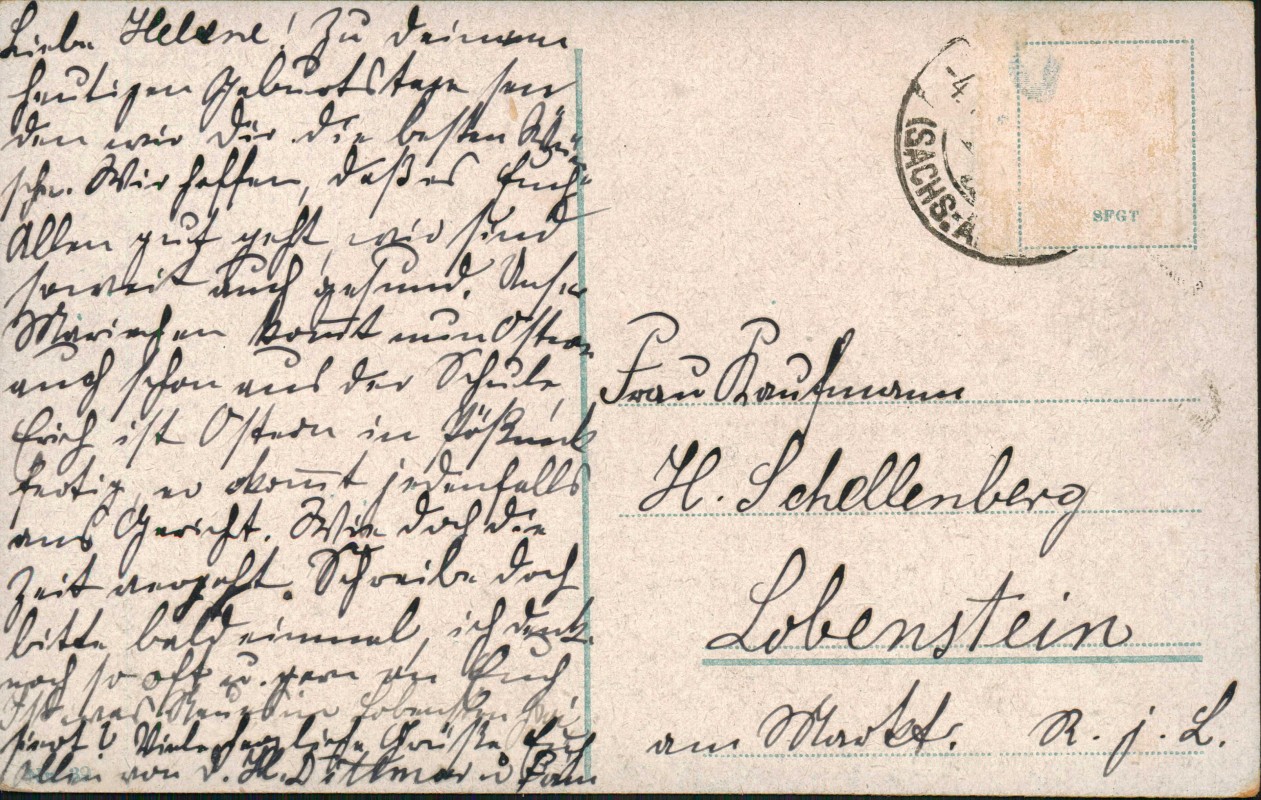 Liebe Helene! Zu deinem
heutigen Geburtstage sen
den wir Dir die besten Wün
sche. Wir hoffen, daß es Euch
Allen gut geht, wir sind
soweit auch gesund. Unser
Mariechen kommt nun Ostern
auch schon aus der Schule,
Erich ist Ostern in Pößneck
fertig, er kommt jedenfalls
aus Gericht. Wie doch die
Zeit vergeht. Schreibe doch
bitte bald einmal, ich denke
noch so oft u. gern an Euch
Ist was Neues in Lobenstein pas
siert? Viele herzliche Grüße Euch
Allen von d. H. Dittmar u Fam
-4.
(SACHS.-A.
SFGT
Frau Kaufmann
H. Schellenberg
Lobenstein
am Markt. R. j. L.